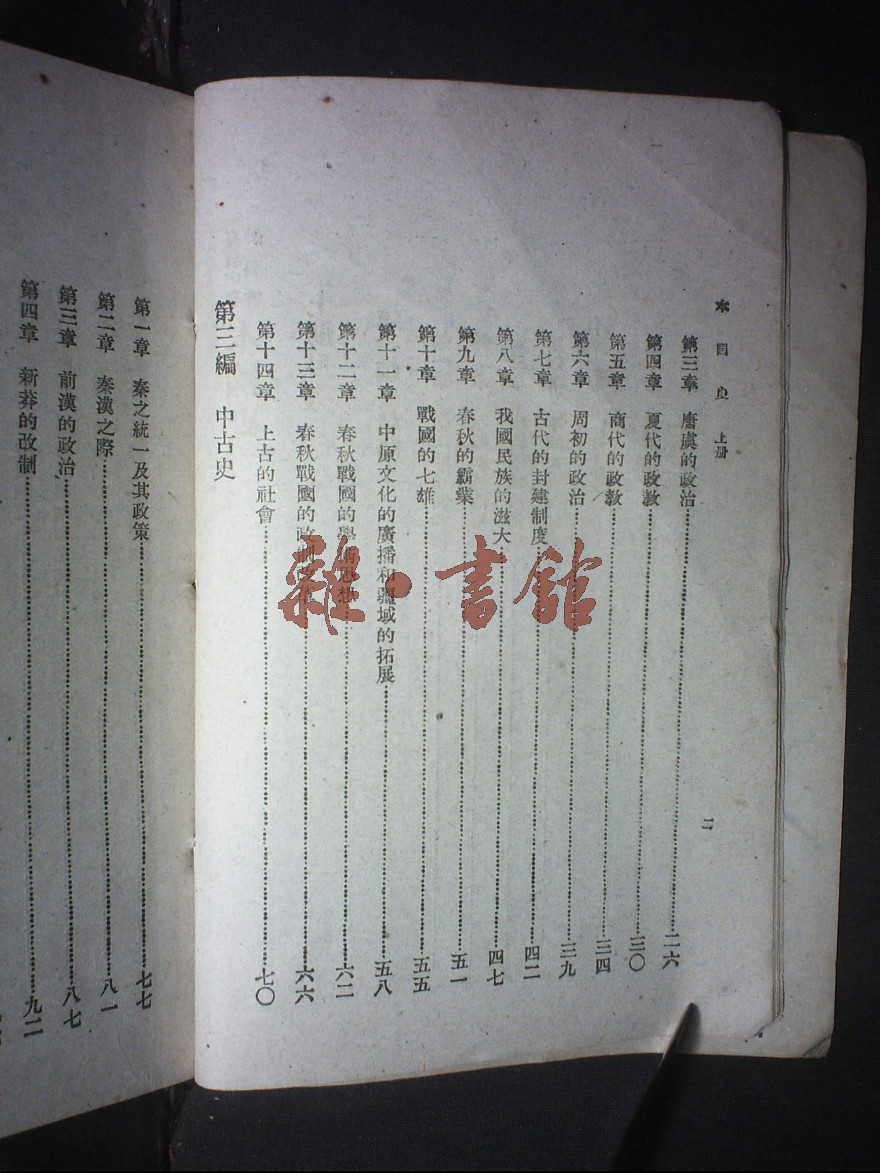 本國史 上册
二
第三章 唐虞的政治 二六
第四章 夏代的政教 三〇
第五章 商代的政教 三四
第六章 周初的政治 三九
第七章 古代的封建制度 四二
第八章 我國民族的滋大 四七
第九章 春秋的霸業 五一
第十章 戰國的七雄 五五
第十一章 中原文化的廣播和疆域的拓展 五八
第十二章 春秋戰國的學術思想 六二
第十三章 春秋戰國的政制 六六
第十四章 上古的社會 七〇
第三編 中古史
第一章 秦之統一及其政策 七七
第二章 秦漢之際 八一
第三章 前漢的政治 八七
第四章 新莽的改制 九二
雜·書館